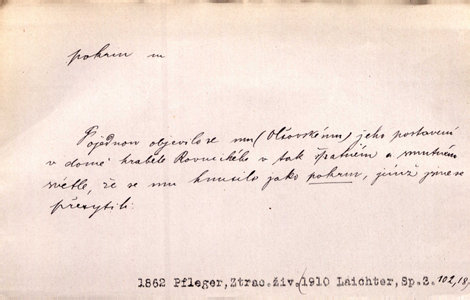 pokrm m
Pojednou objevilo se mu (Olšovskému) jeho postavení
v domě hraběte Rovnického v tak špatném a smutném
světle, že se mu hnusilo jako pokrm, jímž jsme se
přesytili.
1862 Pfleger, Ztrac.živ.(1910 Laichter, Sp.2. 102,18)